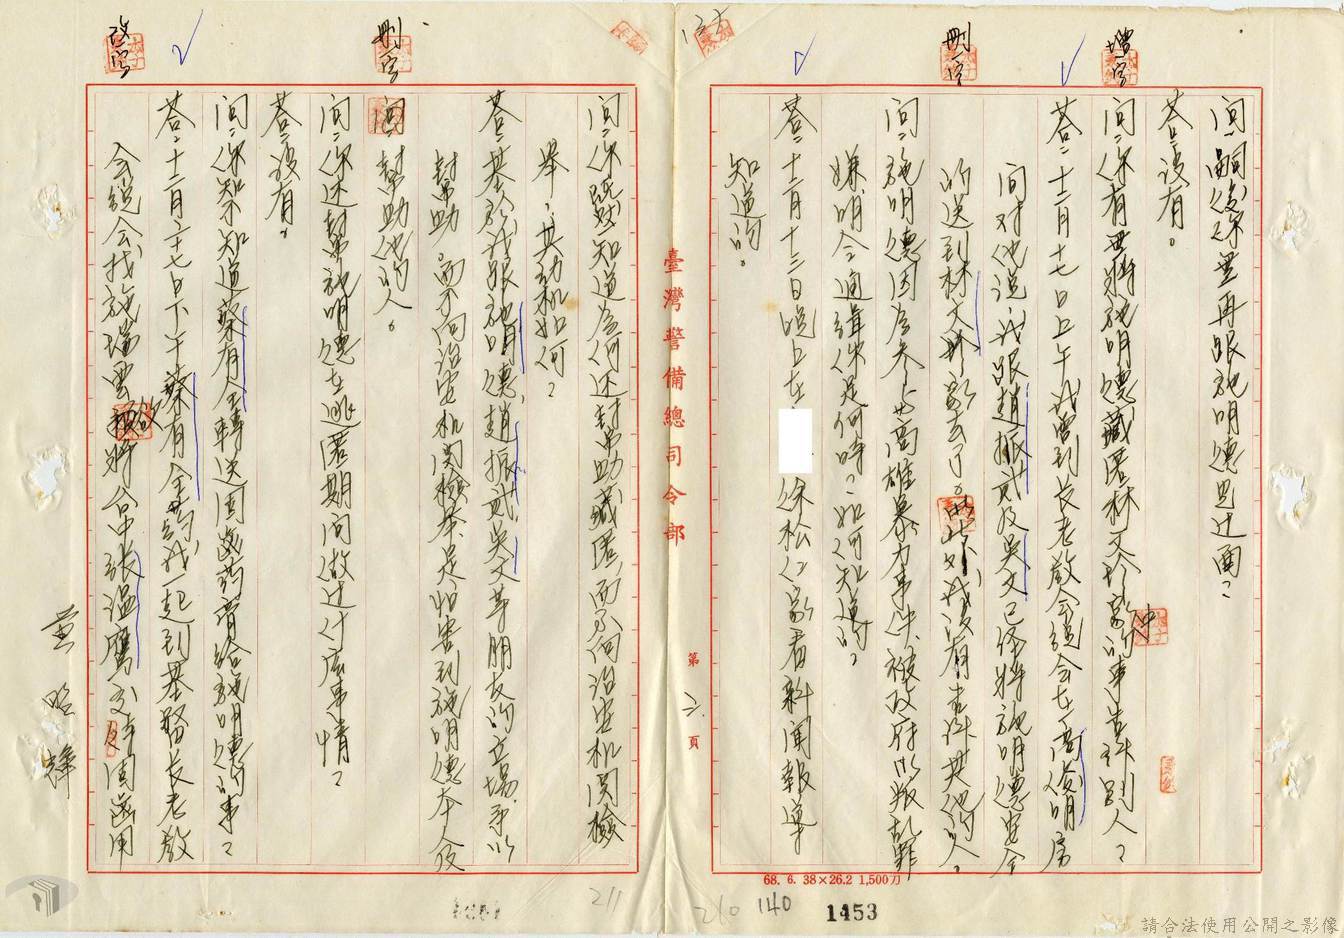 增一字
刪一字
問:嗣後你無再跟施明德見过面?
答:沒有。
問:你有無將施明德藏匿林文珍家的事告訴別人?
答:十二月十七日上午我曾到長老教会總会在高俊明房
間对他说,我跟趙振貳及吳文已經將施明德安全
的送到林文珍家去了。此外我沒有告訴其他的人。
問:施明德因為参与高雄暴力事件,被政府以叛乱罪
嫌,明令通緝你是何時?如何知道的?
答:十二月十三日晚上在
徐松仁家看新聞報導
知道的。
臺灣警備總司令部
第六頁
68. 6. 38×26.2 1,500刀
140
1453
210
刪一字
改一字
問:你既然知道為何还幫助藏匿,而不向治安机関檢
舉?其动机如何?
答:基於我跟施明德、趙振貳、吳文等朋友的立場,予以
幫助。而不向治安机関檢舉是怕害到施明德本人及
幫助他的人。
問:你还幫施明德在逃匿期間做过什麼事情?
答:沒有。
問:你知不知道蔡有全轉送固齒药膏給施明德的事?
答:十二月二十七日下午蔡有全約我一起到基督長老教
会總会找施瑞雲欲將台中張温鷹交待固齒用
黃昭輝
211
請合法使用公開之影像